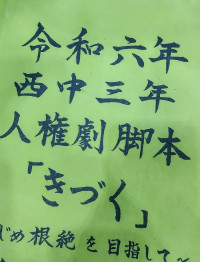 令和六年
西中三年
人権劇脚本
「きづく」
じめ根絶を目指して～